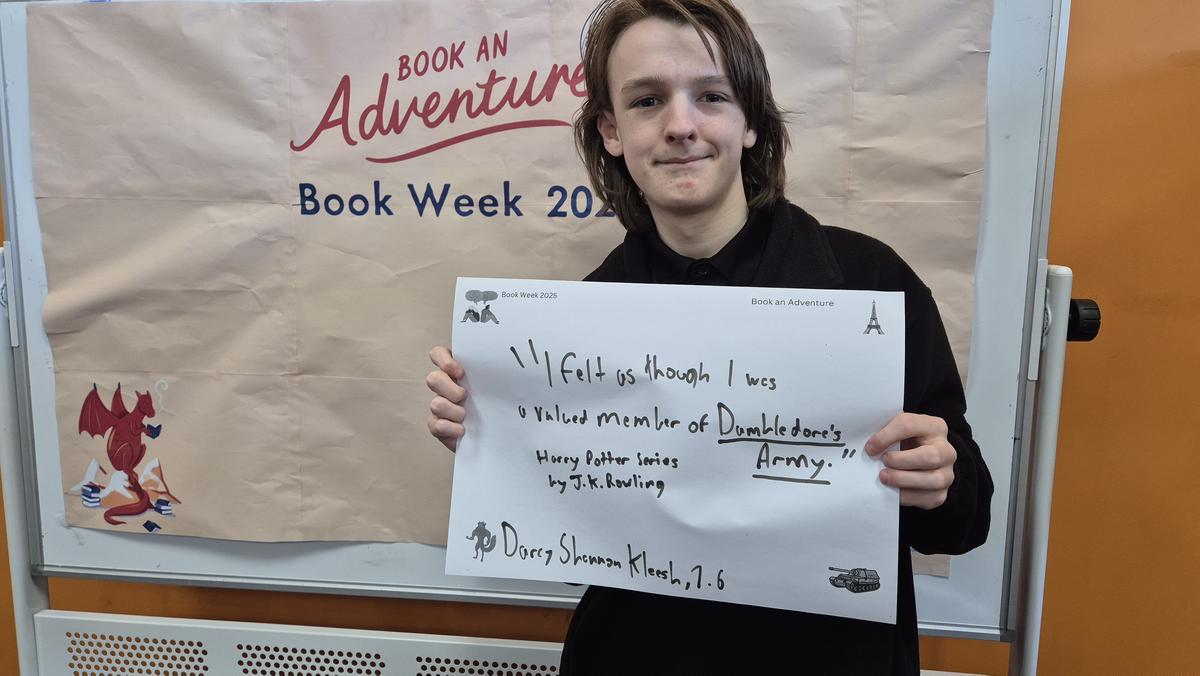 BOOK AN
Adventure
Book Week 202
Book Week 2025
Book an Adventure
"I felt as though I was
a valued member of Dumbledore's
Army."
Harry Potter Series
by J.K. Rowling
Darcy Shannon Kleesh, 7.6